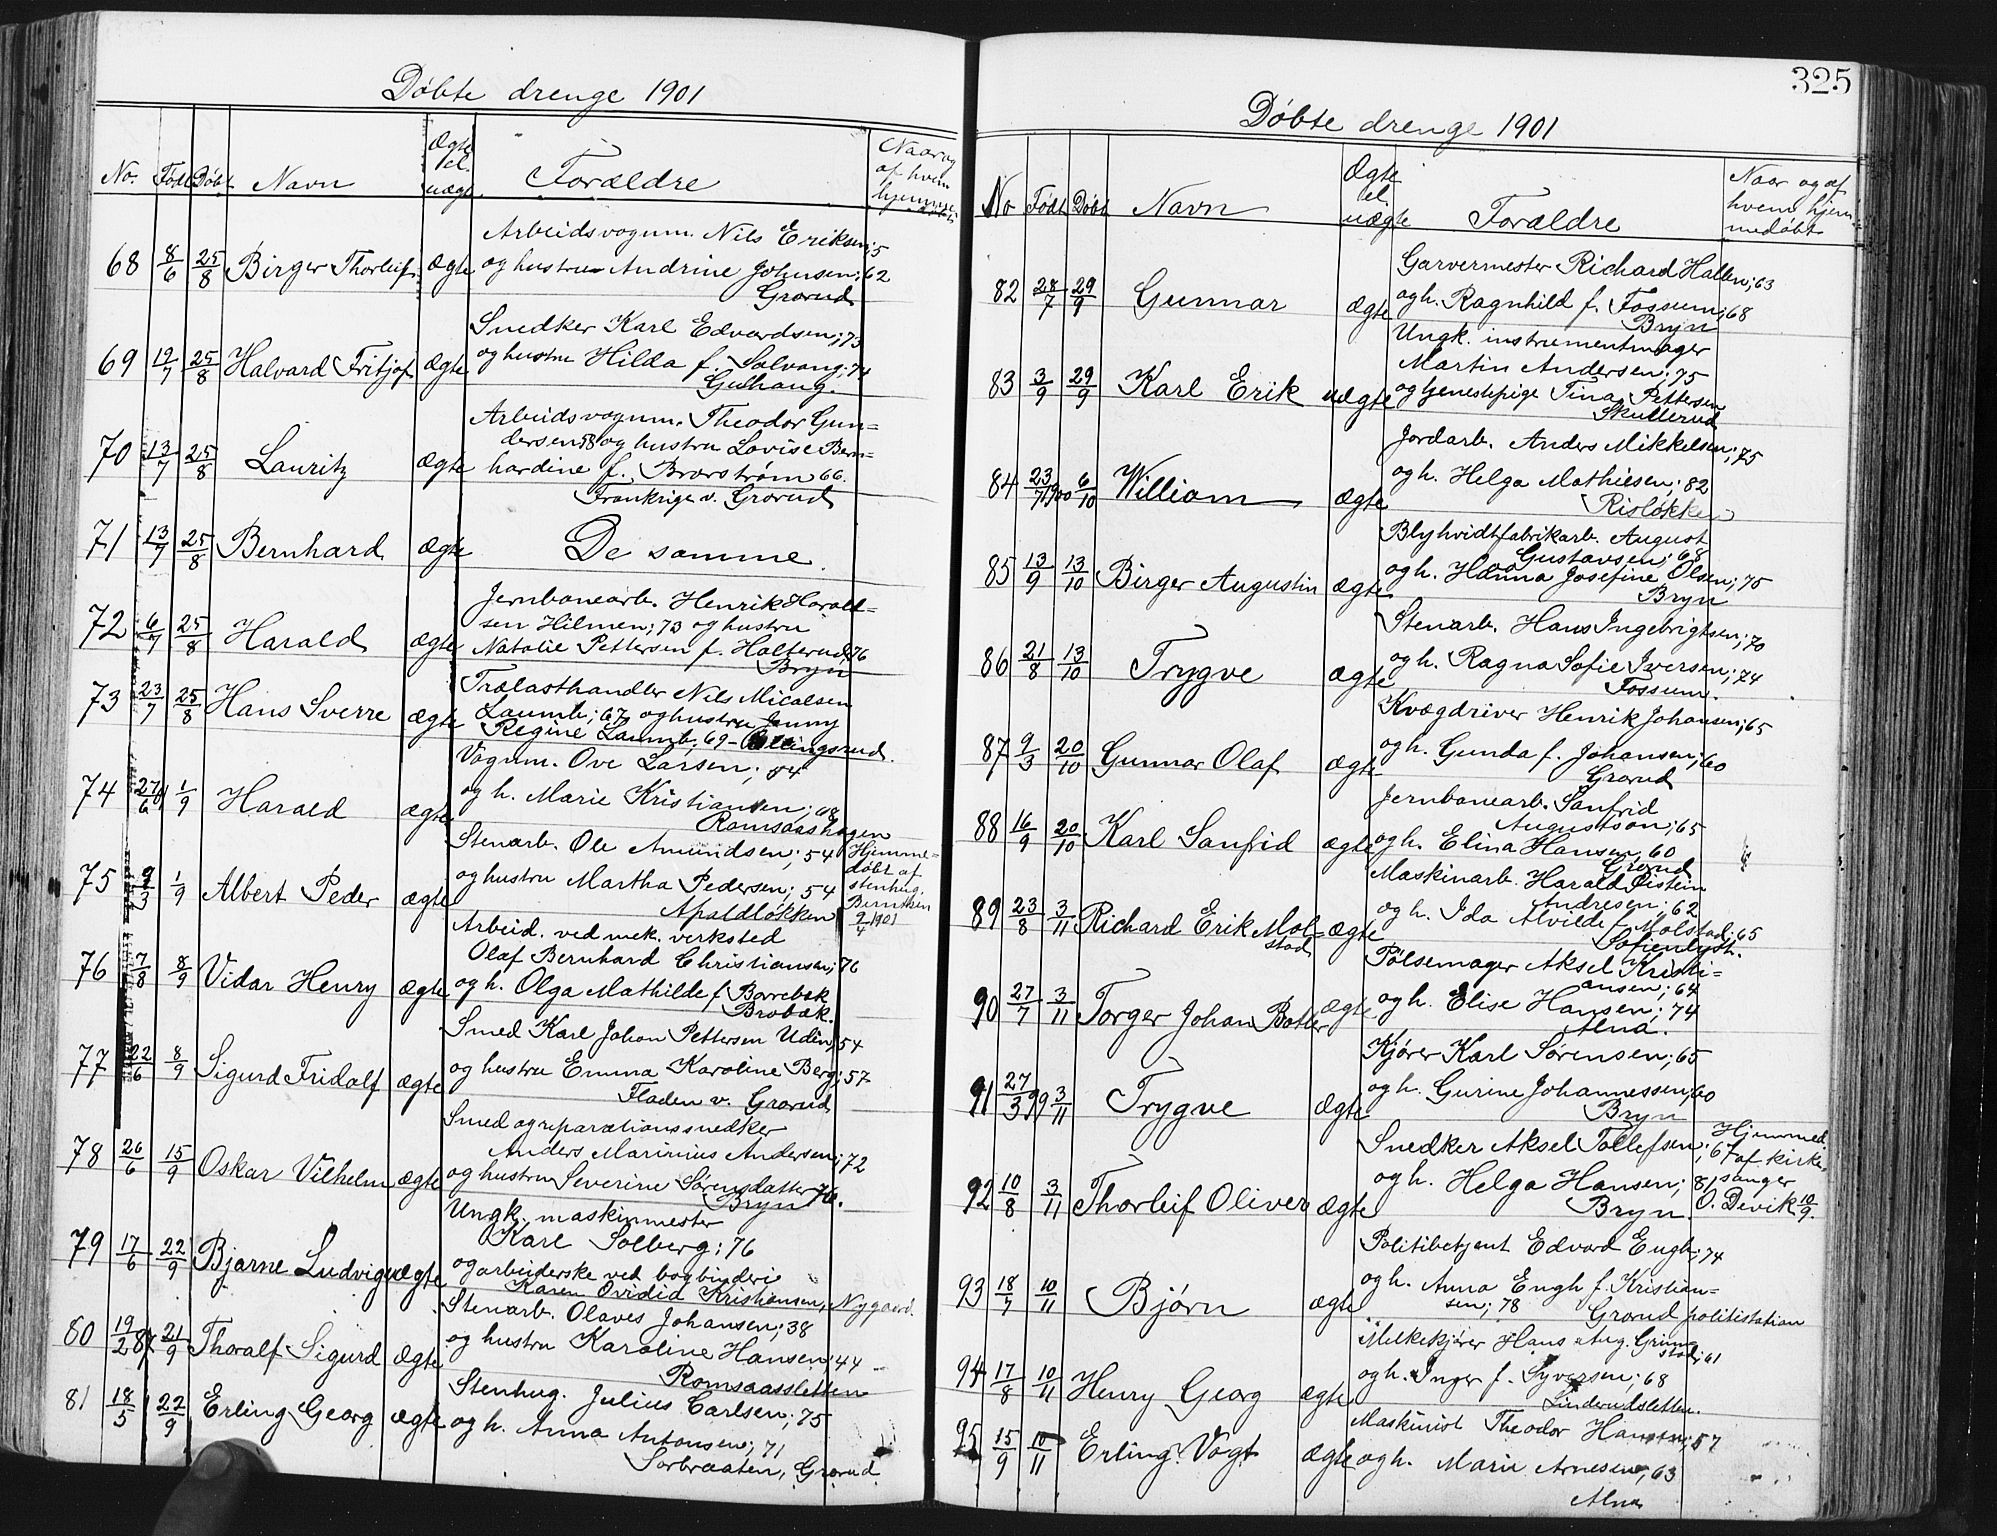 Døbte drenge 1901
No. Født Døbt Navn Ægte el. uægte Forældre Naar og af hvem hjemmedøbt
68 8/6 25/8 Birger Thorleif ægte Arbeidsvogum. Nils Eriksen;
og hustru Andrine Johnsen; 62
Grorud
69 19/7 25/8 Halvard Fritjof ægte Snedker Karl Edvardsen; 73
og hustru Hilda f. Solvang; 74
70 13/7 25/8 Lauritz ægte Arbeidsvogum. Theodor Gun-
dersen 58 og hustru Lovise Bern-
hardine f. Brorstrøm 66.
Frankrige v. Grorud
71 13/7 25/8 Bernhard ægte De samme.
72 6/7 25/8 Harald ægte Jernbanearb. Henrik Harald-
sen Hilmen; 73 og hustru
Natalie Pettersen f. Halterud, 76
Bryn
73 23/7 25/8 Hans Sverre ægte Trælasthandler Nils Micalsen
Laumb; 67, og hustru Jenny
Regine Laumb. 69 - Ellingsrud.
74 27/6 1/9 Harald ægte Vogum. Ove Larsen; 54
og h. Marie Kristiansen; 68
Romsaashagen
75 9/3 1/9 Albert Peder ægte Stenarb. Ole Amundsen; 54 Hjemme-
døbt af
og hustru Martha Pedersen; 54 stenhug.
Apaldløkken Berntsen
9/4 1901
76 7/8 8/9 Vidar Henry ægte Arbeid. ved mek. verksted
Olaf Bernhard Christiansen; 76
og h. Olga Mathilde f. Borrebæk
Brobæk.
77 22/6 8/9 Sigurd Fridolf ægte Smed Karl Johan Pettersen Udin; 54
og hustru Emma Karoline Berg; 57
Fladen v. Grorud
78 26/6 15/9 Oskar Vilhelm ægte Smed og reparationssnedker
Anders Marinius Andersen; 72
og hustru Severine Sørensdatter 76.
Bryn
79 17/6 22/9 Bjarne Ludvig uægte Ungk. maskinmester
Karl Solberg; 76
og arbeiderske ved bogbinderi
Karen Ovidia Kristiansen, Nygaard.
80 19/2 87 21/9 Thoralf Sigurd ægte Stenarb. Olaves Johansen; 38
og hustru Karoline Hansen; 44
Romsaassletten
81 18/5 22/9 Erling Georg ægte Stenhug. Julius Carlsen; 75
og h. Anna Antonsen; 71
Sorbraaten, Grorud
325
Døbte drenge 1901
No Født Døbt Navn Ægte el uægte Forældre Naar og af hvem hjemmedøbt
82 28/7 29/9 Gunnar ægte Garvermester Richard Hallen; 63
og h. Ragnhild f. Fossum; 68
Bryn
83 3/9 29/9 Karl Erik uægte Ungk. instrumentmager
Martin Andersen; 75
og tjenestepige Tina Pettersen
Skullerud
84 23/7 1900 6/10 William ægte Jordarb. Anders Mikkelsen; 75
og h. Helga Mathiesen; 82
Risløkken
85 13/9 13/10 Birger Augustin ægte Blyhvidtfabrikarb. August
Gustavsen; 68
og h. Hanna Josefine Olsen; 75
Bryn
86 21/8 13/10 Trygve ægte Stenarb. Hans Ingebrigtsen; 70
og h. Ragna Sofie Iversen; 74
Fossum.
87 9/3 20/10 Gunnar Olaf ægte Kvægdriver Henrik Johansen; 65
og h. Gunda f. Johansen; 60
Grorud
88 16/9 20/10 Karl Sanfrid ægte Jernbanearb. Sanfrid
Augustson; 65
og h. Elina Hansen, 60
Grorud
89 23/8 3/11 Richard Erik Mol-
stad ægte Maskinarb. Harald Øistein
Andresen; 62
og h. Ida Alvilde f. Molstad; 65
Sofienlyst.
90 27/7 3/11 Torger Johan ægte Pølsemager Aksel Kristi-
ansen; 64
og h. Elise Hansen; 74
Alna.
91 27/3 99 3/11 Trygve ægte Kjører Karl Sørensen; 65
og h. Gurine Johannessen; 60
Bryn
92 10/8 3/11 Thorleif Oliver ægte Snedker Aksel Tollefsen; 67 Hjemmed
af kirke-
og h. Helga Hansen; 81 sanger
Bryn. O. Devik 10/9.
93 18/7 10/11 Bjørn ægte Politibetjent Edvard Engh; 74
og h. Anna Engh f. Kristian-
sen; 78 Grorud politistation
94 17/8 10/11 Henry Georg ægte Melkekjører Hans Aug. Grim-
stad; 61
og h. Inger f. Syversen; 68
Linderudsletten.
95 15/9 10/11 Erling Vogt ægte Maskinist Theodor Hansen; 57
og h. Marie Arnesen, 63
Alna